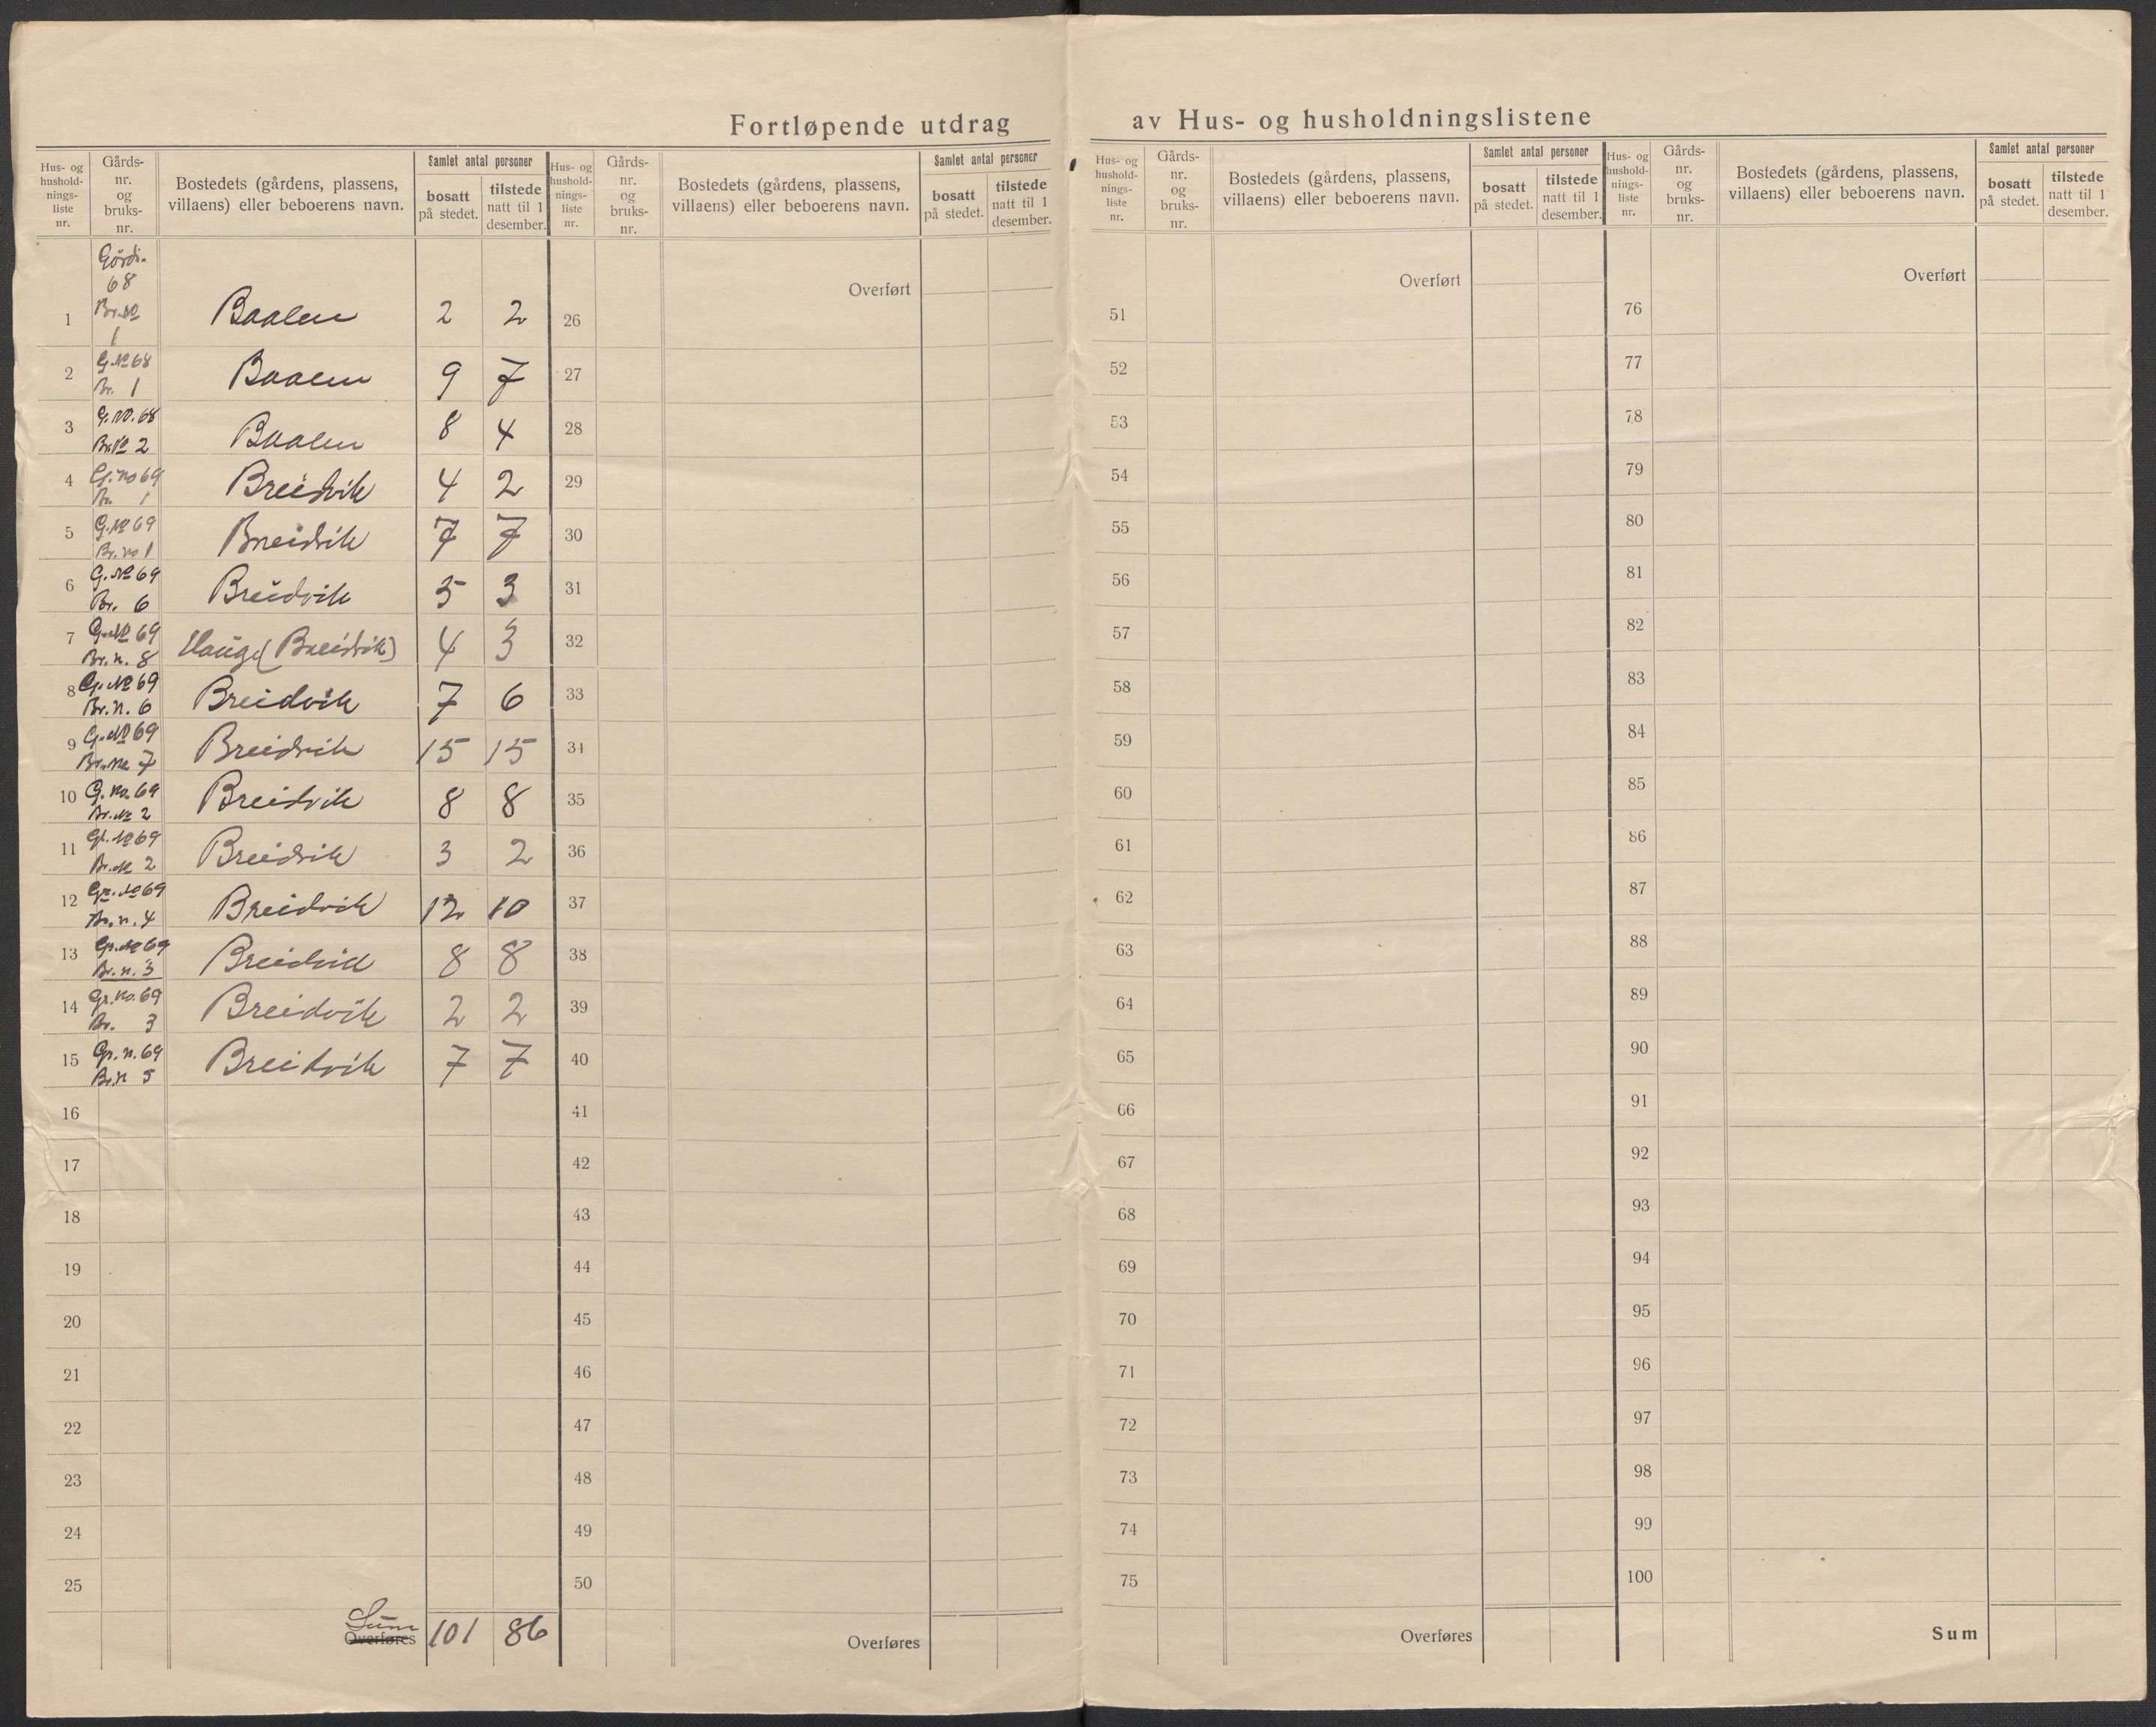 Fortløpende utdrag av Hus- og husholdningslistene
Hus- og hushold- nings- liste nr.
Gårds- nr. og bruks- nr.
Bostedets (gårdens, plassens, villaens) eller beboerens navn.
Samlet antal personer
bosatt på stedet.
tilstede natt til 1 desember.
Gårds-
68
Br. No
1 1 Baalen 2 2
2 G. No 68 Br. 1 Baalen 9 7
3 G. No. 68 Br. No 2 Baalen 8 4
4 G. No 69 Br. 1 Breidvik 4 2
5 G. No 69 Br. no 1 Breidvik 7 7
6 G. No 69 Br. 6 Breidvik 5 3
7 G. No 69 Br. n. 8 Haug (Breidvik) 4 3
8 G. No 69 Br. n. 6 Breidvik 7 6
9 G. No 69 Br. No 7 Breidvik 15 15
10 G. No. 69 Br. No 2 Breidvik 8 8
11 G. No 69 Br. No 2 Breidvik 3 2
12 Gr. No 69 Br. n. 4 Breidvik 12 10
13 Gr. No 69 Br. n. 3 Breidvik 8 8
14 Gr. No. 69 Br. 3 Breidvik 2 2
15 Gr. n. 69 Br. n 5 Breidvik 7 7
16
17
18
19
20
21
22
23
24
25
Sum
Overføres 101 86
Hus- og hushold- nings- liste nr.
Gårds- nr. og bruks- nr.
Bostedets (gårdens, plassens, villaens) eller beboerens navn.
Samlet antal personer
bosatt på stedet.
tilstede natt til 1 desember.
Overført
26
27
28
29
30
31
32
33
34
35
36
37
38
39
40
41
42
43
44
45
46
47
48
49
50
Overføres
Hus- og hushold- nings- liste nr.
Gårds- nr. og bruks- nr.
Bostedets (gårdens, plassens, villaens) eller beboerens navn.
Samlet antal personer
bosatt på stedet.
tilstede natt til 1 desember.
Overført
51
52
53
54
55
56
57
58
59
60
61
62
63
64
65
66
67
68
69
70
71
72
73
74
75
Overføres
Hus- og hushold- nings- liste nr.
Gårds- nr. og bruks- nr.
Bostedets (gårdens, plassens, villaens) eller beboerens navn.
Samlet antal personer
bosatt på stedet.
tilstede natt til 1 desember.
Overført
76
77
78
79
80
81
82
83
84
85
86
87
88
89
90
91
92
93
94
95
96
97
98
99
100
Sum